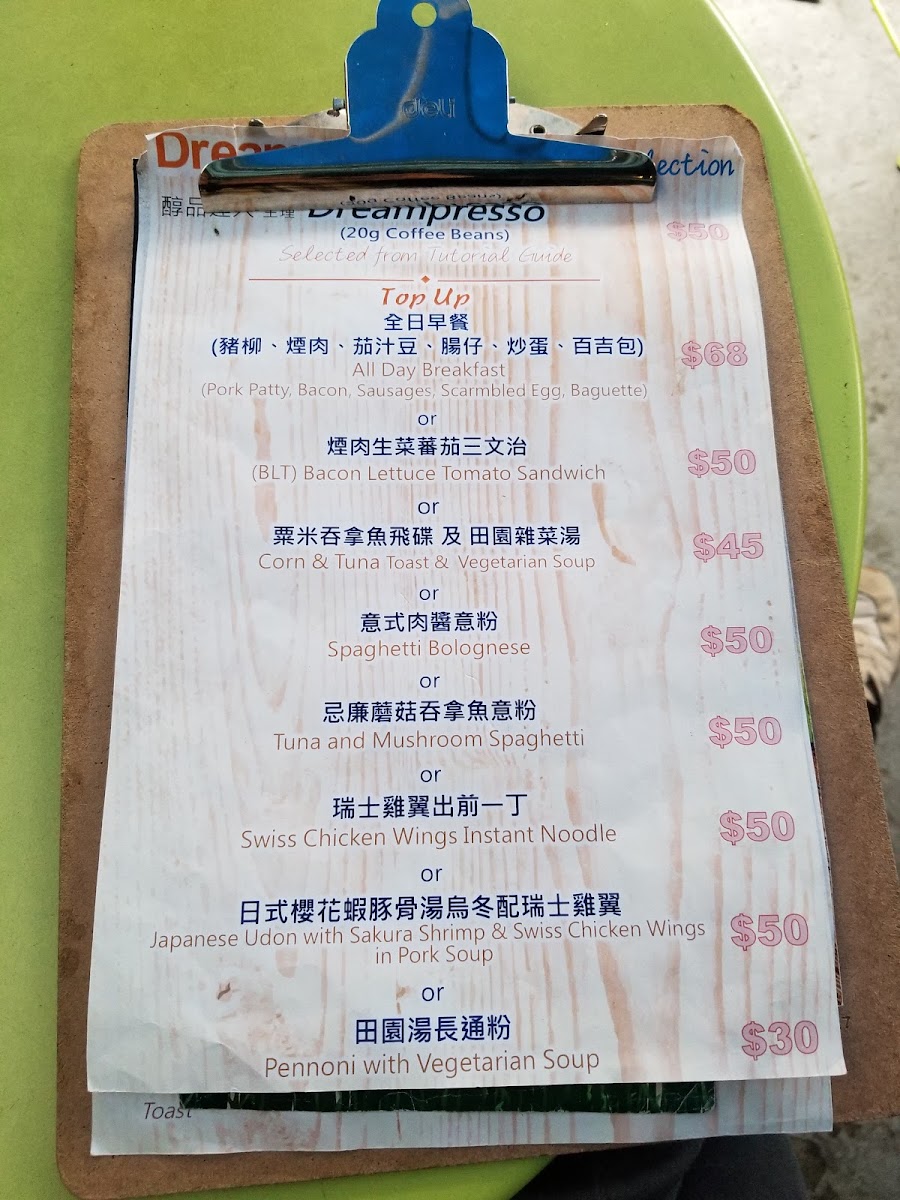 deli
lection
Dreampresso
(20g Coffee Beans)
$50
Selected from Tutorial Guide
Top Up
全日早餐
(豬柳、煙肉、茄汁豆、腸仔、炒蛋、百吉包)
$68
All Day Breakfast
(Pork Patty, Bacon, Sausages, Scarmbled Egg, Baguette)
or
煙肉生菜蕃茄三文治
$50
(BLT) Bacon Lettuce Tomato Sandwich
or
粟米吞拿魚飛碟 及 田園雜菜湯
$45
Corn & Tuna Toast & Vegetarian Soup
or
意式肉醬意粉
$50
Spaghetti Bolognese
or
忌廉蘑菇吞拿魚意粉
$50
Tuna and Mushroom Spaghetti
or
瑞士雞翼出前一丁
$50
Swiss Chicken Wings Instant Noodle
or
日式櫻花蝦豚骨湯烏冬配瑞士雞翼
$50
Japanese Udon with Sakura Shrimp & Swiss Chicken Wings
in Pork Soup
or
田園湯長通粉
$30
Pennoni with Vegetarian Soup
Toast